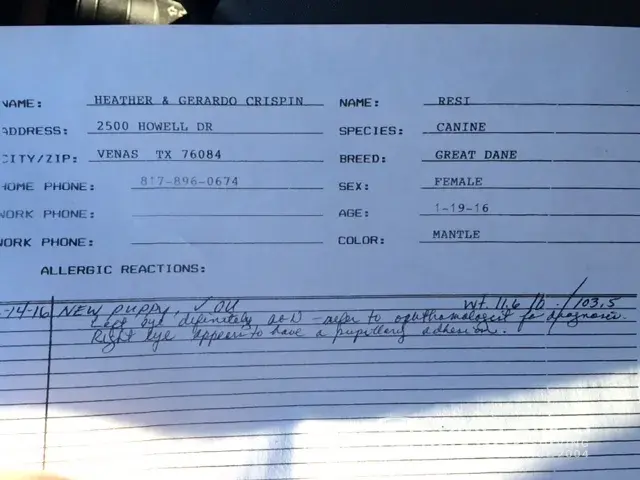 NAME: HEATHER & GERARDO CRISPIN NAME: RESI
ADDRESS: 2500 HOWELL DR SPECIES: CANINE
CITY/ZIP: VENAS TX 76084 BREED: GREAT DANE
HOME PHONE: 817-896-0674 SEX: FEMALE
WORK PHONE: AGE: 1-19-16
WORK PHONE: COLOR: MANTLE
ALLERGIC REACTIONS:
-14-16 NEW PUPPY, √ OU Wt. 11.6 lb / 103.5
Left eye definitely - refer to ophthamologist for diagnosis.
Right eye appears to have a pupillary adhesion.